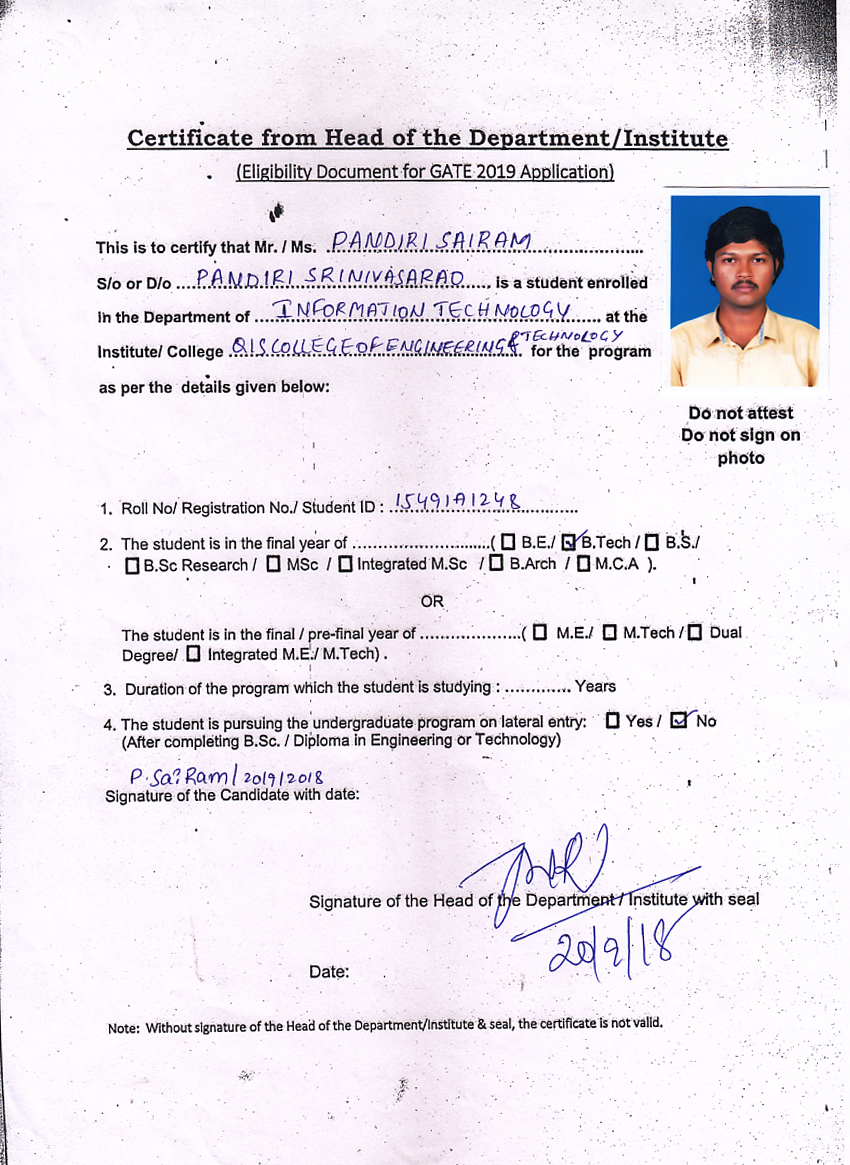 Certificate from Head of the Department/Institute
(Eligibility Document for GATE 2019 Application)
This is to certify that Mr. / Ms. PANDIRI SAIRAM
S/o or D/o ....PANDIRI SRINIVASARAO....., is a student enrolled
in the Department of ....INFORMATION TECHNOLOGY...... at the
Institute/ College QIS COLLEGE OF ENGINEERING & TECHNOLOGY for the program
as per the details given below:
Do not attest
Do not sign on
photo
1. Roll No/ Registration No./ Student ID : 15491A1248
2. The student is in the final year of ..........................( ☐ B.E./ ☑ B.Tech / ☐ B.S./
☐ B.Sc Research / ☐ MSc / ☐ Integrated M.Sc / ☐ B.Arch / ☐ M.C.A ).
OR
The student is in the final / pre-final year of .....................( ☐ M.E./ ☐ M.Tech / ☐ Dual
Degree/ ☐ Integrated M.E./ M.Tech) .
3. Duration of the program which the student is studying : ............. Years
4. The student is pursuing the undergraduate program on lateral entry: ☐ Yes / ☑ No
(After completing B.Sc. / Diploma in Engineering or Technology)
P. SaiRam / 20/9/2018
Signature of the Candidate with date:
Signature of the Head of the Department / Institute with seal
20/9/18
Date:
Note: Without signature of the Head of the Department/Institute & seal, the certificate is not valid.